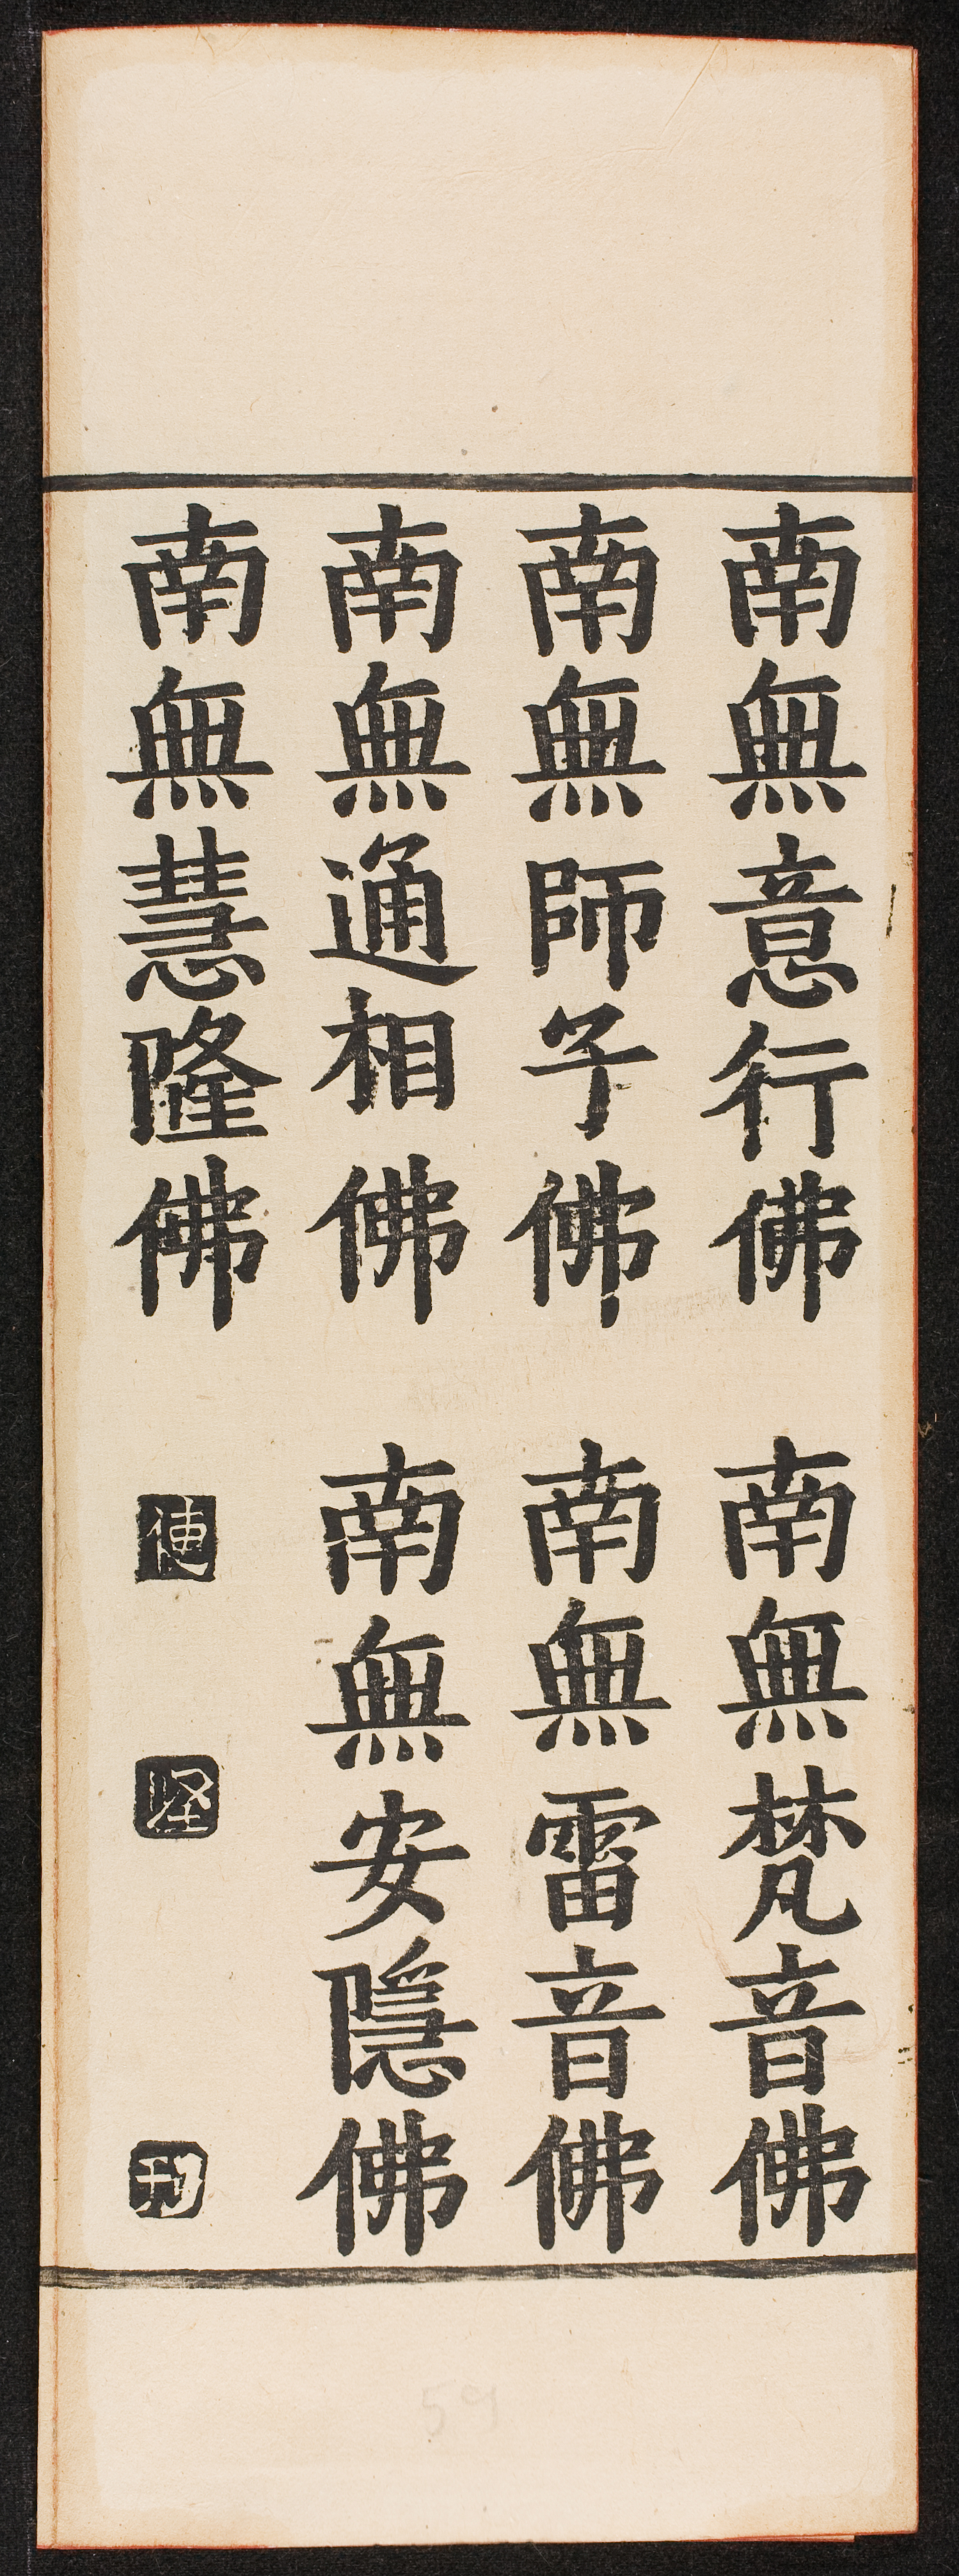 南無意行佛 南無梵音佛
南無師子佛 南無雷音佛
南無通相佛 南無安隱佛
南無慧隆佛
刊
59